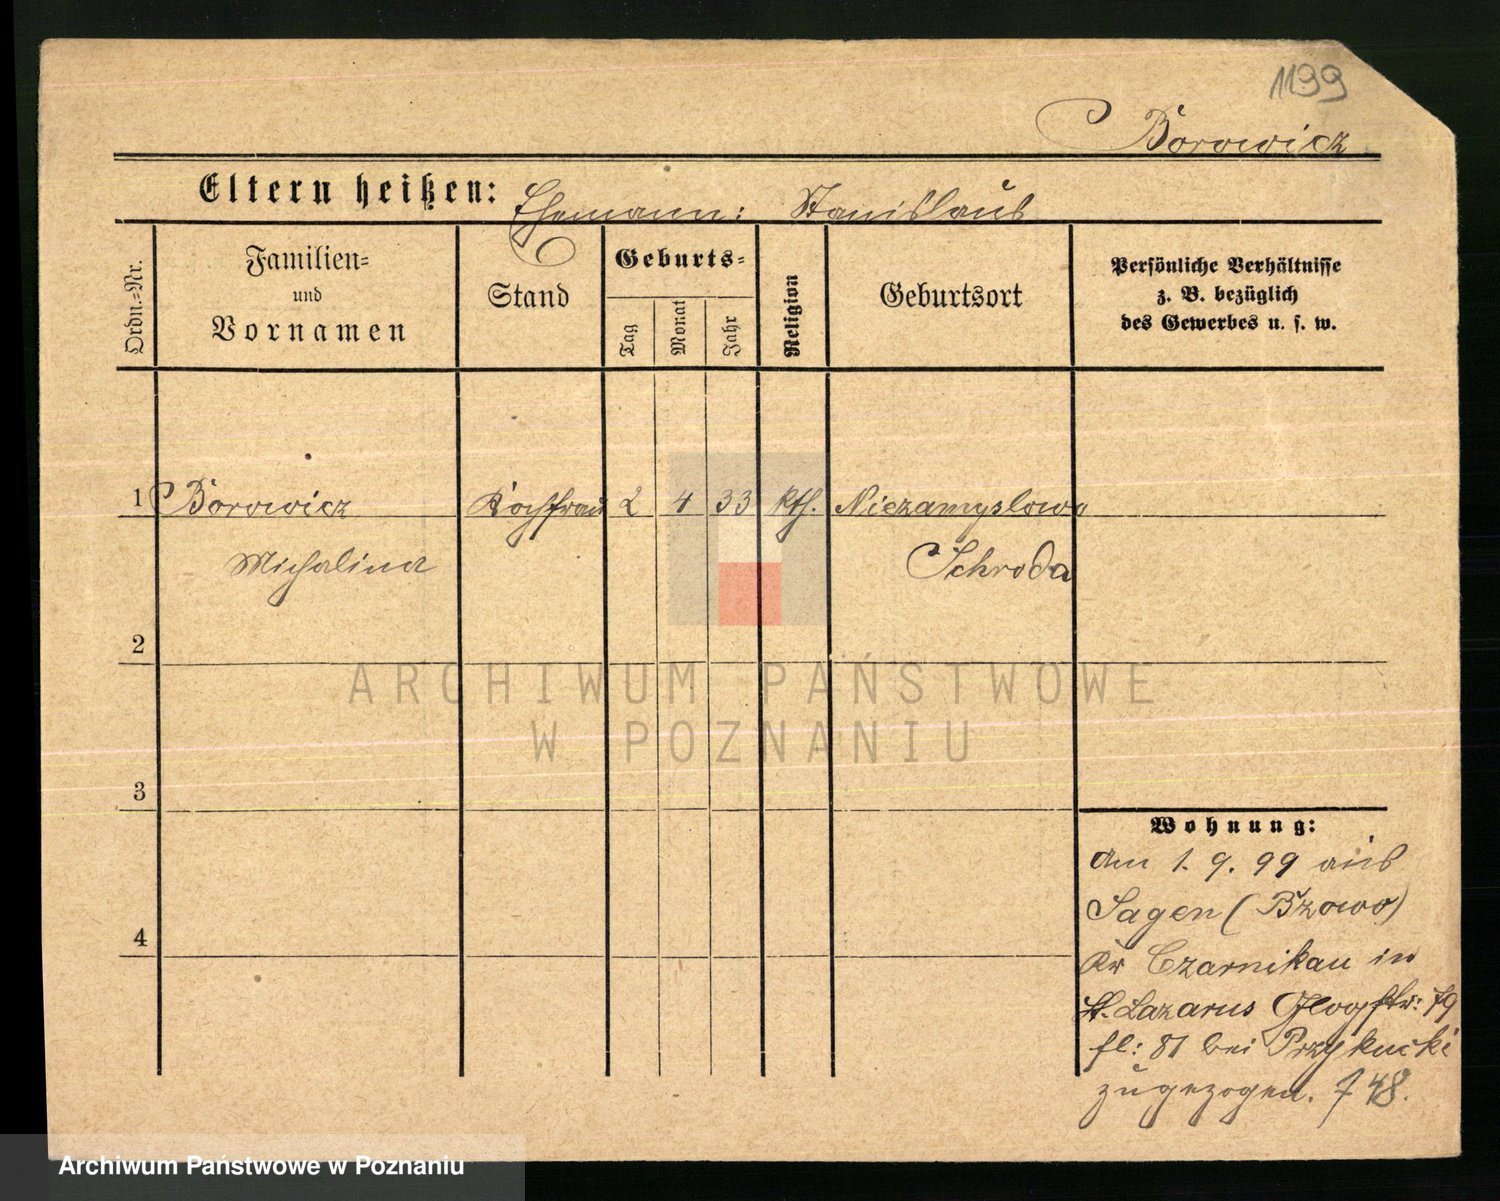 1199
Borowicz
Eltern heißen: Ehemann: Stanislaus
Ordn.-Nr.
Familien-
und
Vornamen
Stand
Geburts-
Tag
Monat
Jahr
Religion
Geburtsort
Persönliche Verhältnisse
z. B. bezüglich
des Gewerbes u. s. w.
1 Borowicz Kochfrau 2 4 33 kth. Niezamyslowo
Michalina Schroda
2
3
4
Wohnung:
Am 1. 9. 99 aus
Sagen (Bzowo)
Kr Czarnikau in
St. Lazarus 79
fl: 81 bei Przykucki
zugezogen. 48.
ARCHIWUM PAŃSTWOWE
W POZNANIU
Archiwum Państwowe w Poznaniu